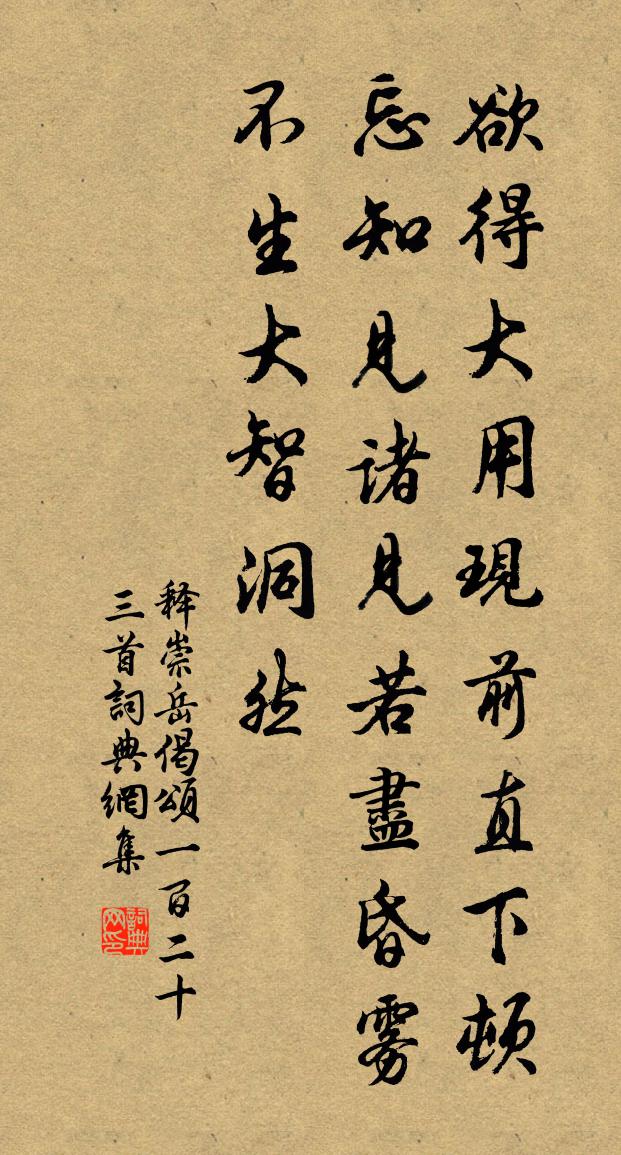 欲得大用現前直下頓
忘知見諸見若盡昏霧
不生大智洞然
释崇岳偈頌一百二十
三首詞典網集
詞典网印